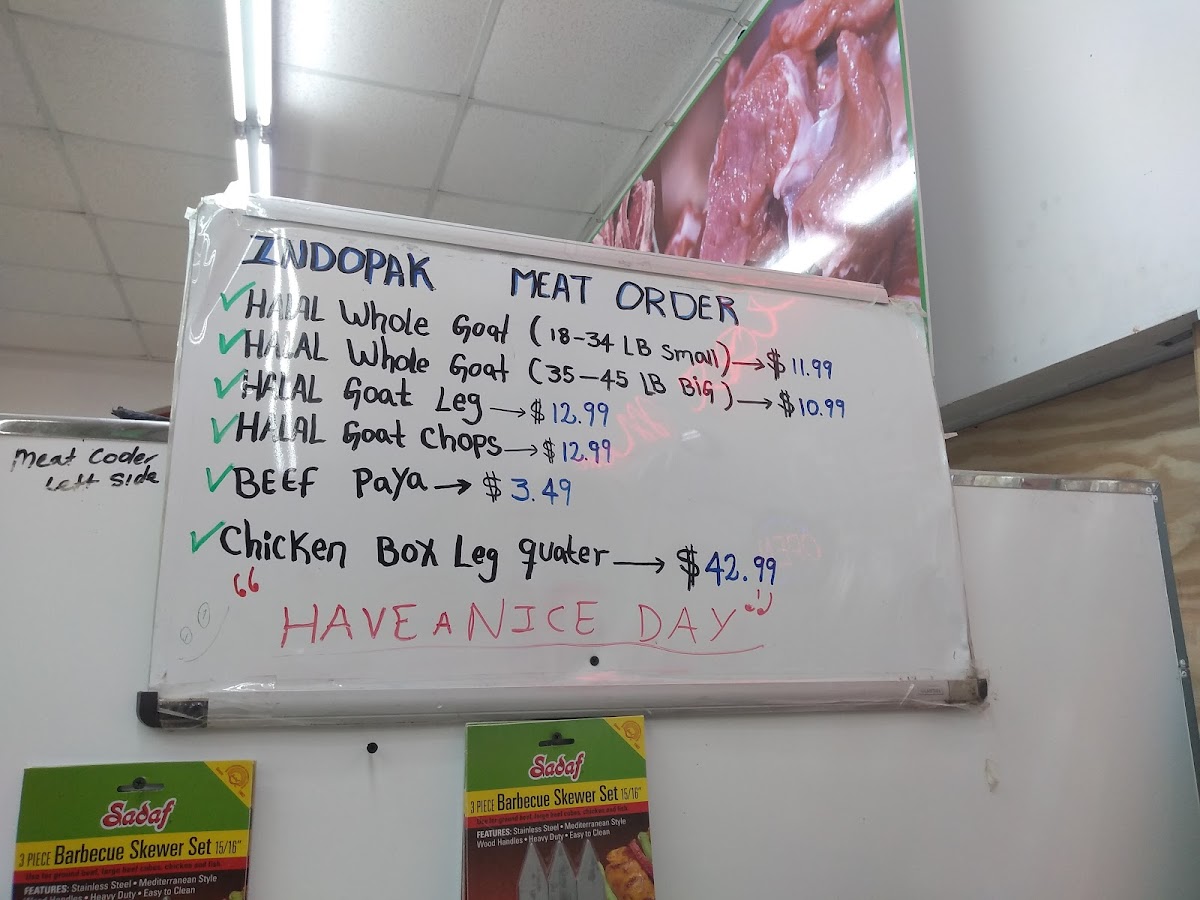 INDOPAK MEAT ORDER
✓ HALAL Whole Goat (18-34 LB Small) → $ 11.99
✓ HALAL Whole Goat (35-45 LB BiG) → $ 10.99
✓ HALAL Goat Leg → $ 12.99
✓ HALAL Goat Chops → $ 12.99
✓ BEEF PaYa → $ 3.49
✓ Chicken Box Leg quater → $ 42.99
“ HAVE A NICE DAY ”
Meat Cooler
Left Side
Sadaf
3 PIECE Barbecue Skewer Set 15/16"
Use for ground beef, large beef cubes, chicken and fish
FEATURES: Stainless Steel • Mediterranean Style
Wood Handles • Heavy Duty • Easy to Clean
Sadaf
3 PIECE Barbecue Skewer Set 15/16"
Use for ground beef, large beef cubes, chicken and fish
FEATURES: Stainless Steel • Mediterranean Style
Wood Handles • Heavy Duty • Easy to Clean